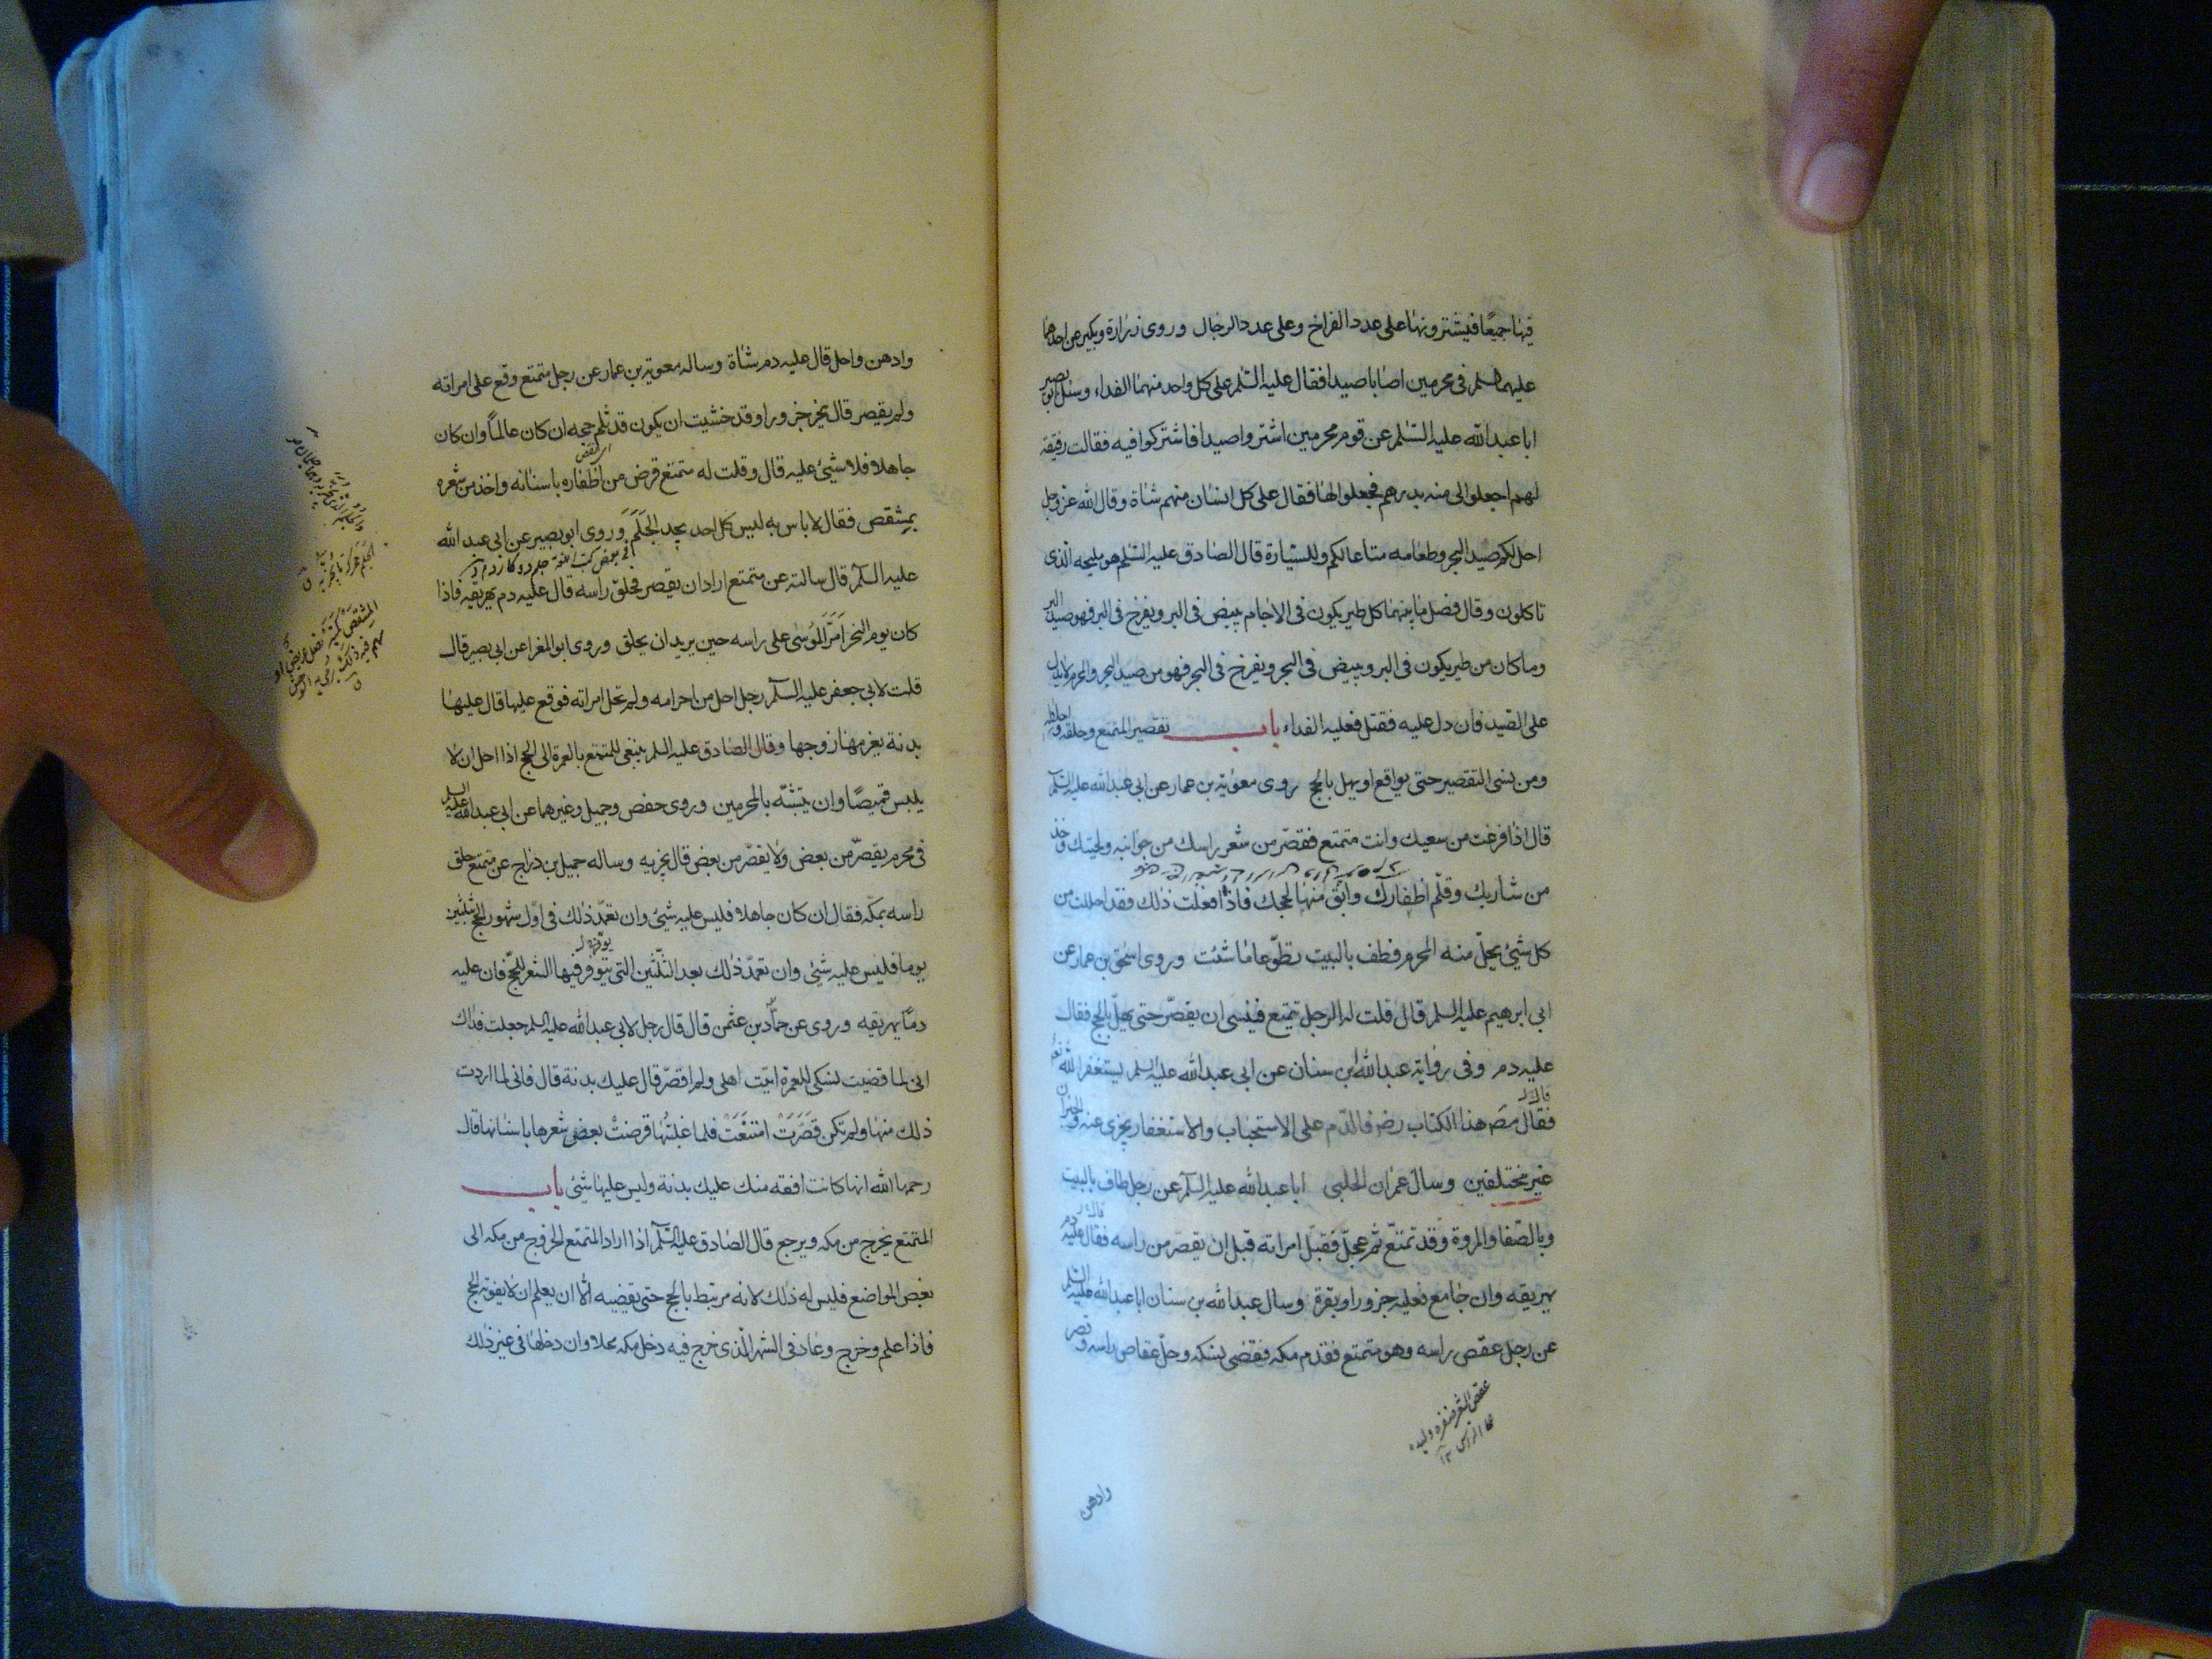 فيها جميعًا فيشترونها على عدد الفراخ وعلى عدد الرجال وروى زرارة وبكير عن احدهما
عليهما السلم فى محرمين اصابا صيدا فقال عليه السلم على كل واحد منهما الفداء وسئل ابو بصير
ابا عبد الله عليه السلم عن قوم محرمين اشتروا صيدا فاشتركوا فيه فقالت رفيقة
لهم اجعلوا لى منه بدرهم فجعلوا لها فقال على كل انسان منهم شاة وقال الله عز وجل
احل لكم صيد البحر وطعامه متاعا لكم وللسيارة قال الصادق عليه السلم هو مليحه الذى
تاكلون وقال فصل ما بينهما كل طير يكون فى الاجام يبيض فى البر ويفرخ فى البر فهو صيد البر
وما كان من طير يكون فى البر ويبيض فى البحر ويفرخ فى البحر فهو من صيد البحر والمحرم لا يدل
على الصيد فان دل عليه فقتل فعليه الفداء باب تقصير المتمتع وحلقه واحلاله
ومن نسى التقصير حتى يواقع او يهل بالحج روى معوية بن عمار عن ابى عبد الله عليه السلم
قال اذا فرغت من سعيك وانت متمتع فقصر من شعر راسك من جوانبه ولحيتك وخذ
من شاربك وقلّم اظفارك وابق منها لحجك فاذا فعلت ذلك فقد احللت من
كل شئ يحلّ منه المحرم فطف بالبيت تطوّعا ما شئت وروى اسحق بن عمار عن
ابى ابرهيم عليه السلم قال قلت له الرجل يتمتع فينسى ان يقصّر حتى يهلّ بالحج فقال
عليه دم وفى رواية عبد الله بن سنان عن ابى عبد الله عليه السلم يستغفر الله
فقال مص هذا الكتاب رضه فالدّم على الاستحباب والاستغفار يجزى عنه والخبران
غير مختلفين وسال عمران الحلبى ابا عبد الله عليه السلم عن رجل طاف بالبيت
وبالصّفا والمروة وقد تمتع ثم عجلّ فقبّل امراته قبل ان يقصر من راسه فقال عليه دم
يهريقه وان جامع فعليه جزور او بقرة وسال عبد الله بن سنان ابا عبد الله عليه السلم
عن رجل عقص راسه وهو متمتع فقدم مكه فقضى نسكه وحلّ عقاص راسه وقصر
عقص الشعر ضفره وليه
وادهن
وادهن واحل قال عليه دم شاة وساله معوية بن عمار عن رجل متمتع وقع على امراته
ولم يقصر قال ينحر جزورا وقد خشيت ان يكون قد ثلم حجه ان كان عالمًا وان كان
جاهلا فلا شئ عليه قال وقلت له متمتع قرض من اظفاره باسنانه واخذ من شعره
بمشقص فقال لا باس به ليس كل احد يجد الجَلَم وروى ابو بصير عن ابى عبد الله
عليه السلم قال سالته عن متمتع اراد ان يقصر فحلق راسه قال عليه دم يهريقه فاذا
كان يوم النحر امَرَّ المُوسى على راسه حين يريد ان يحلق وروى ابو المغرا عن ابى بصير قال
قلت لابى جعفر عليه السلم رجل احل من احرامه ولم تحل امراته فوقع عليها قال عليها
بدنة يغرمها زوجها وقال الصادق عليه السلم ينبغى للمتمتع بالعمرة الى الحج اذا احل ان لا
يلبس قميصًا وان يتشبّه بالمحرمين وروى حفص وجميل وغيرهما عن ابى عبد الله عليه السلم
فى محرم يقصرّ من بعض ولا يقصّر من بعض قال يجزيه وساله جميل بن دراج عن متمتع حلق
راسه بمكّه فقال ان كان جاهلا فليس عليه شئ وان تعمّد ذلك فى اوّل شهور الحج بثلثين
يوما فليس عليه شئ وان تعمّد ذلك بعد الثلثين التى يتوفر فيها الشعر للحجّ فان عليه
دمًا يهريقه وروى عن حمّاد بن عثمن قال قال رجل لابى عبد الله عليه السلم جعلت فداك
انى لما قضيت نسكى للعمرة اتيت اهلى ولم اقصّر قال عليك بدنة قال فانى لما اردت
ذلك منها ولم تكن قصَرَتْ امتنعَتْ فلما غلبتُها قرضتْ بعض شعرها باسنانها قال
رحمها الله انها كانت افقه منك عليك بدنة وليس عليها شئ باب
المتمتع يخرج من مكه ويرجع قال الصادق عليه السلم اذا اراد المتمتع الخروج من مكه الى
بعض المواضع فليس له ذلك لانه مرتبط بالحج حتى يقضيه الّا ان يعلم ان لا يفوته الحج
فاذا علم وخرج وعاد فى الشهر الذى خرج فيه دخل مكه محلا وان دخلها فى غير ذلك